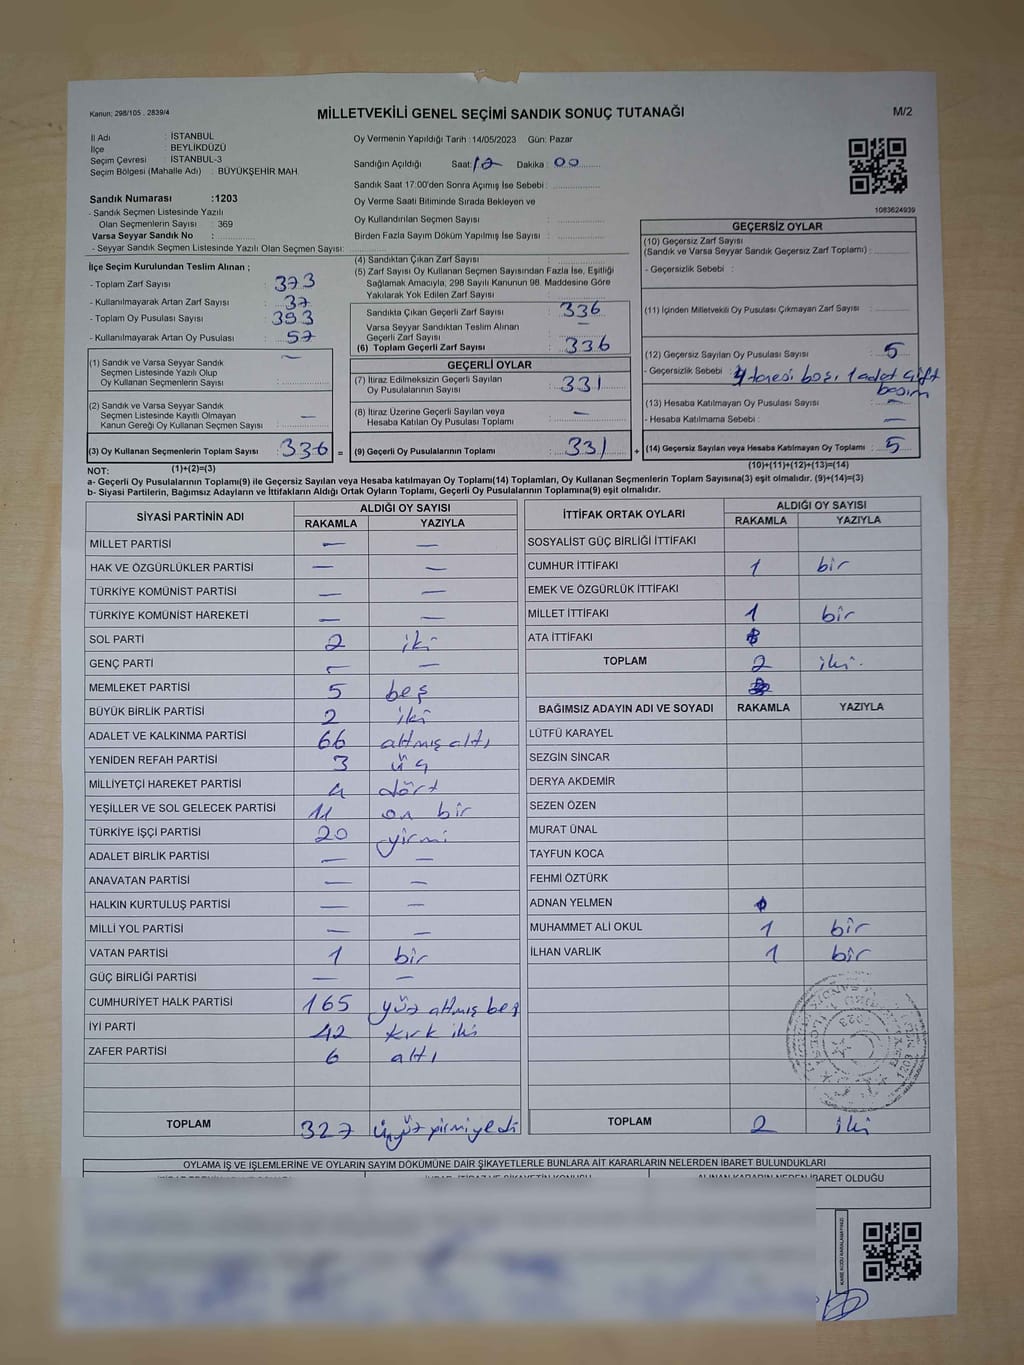 Kanun: 298/105 . 2839/4
MİLLETVEKİLİ GENEL SEÇİMİ SANDIK SONUÇ TUTANAĞI
M/2
İl Adı : İSTANBUL
İlçe : BEYLİKDÜZÜ
Seçim Çevresi : İSTANBUL-3
Seçim Bölgesi (Mahalle Adı) : BÜYÜKŞEHİR MAH.
Sandık Numarası :1203
- Sandık Seçmen Listesinde Yazılı
Olan Seçmenlerin Sayısı : 369
Varsa Seyyar Sandık No :
- Seyyar Sandık Seçmen Listesinde Yazılı Olan Seçmen Sayısı:
Oy Vermenin Yapıldığı Tarih :14/05/2023 Gün: Pazar
Sandığın Açıldığı Saat: 12 Dakika : 00
Sandık Saat 17:00'den Sonra Açımış İse Sebebi :
Oy Verme Saati Bitiminde Sırada Bekleyen ve
Oy Kullandırılan Seçmen Sayısı :
Birden Fazla Sayım Döküm Yapılmış İse Sayısı :
1083624939
İlçe Seçim Kurulundan Teslim Alınan ;
- Toplam Zarf Sayısı : 373
- Kullanılmayarak Artan Zarf Sayısı : 37
- Toplam Oy Pusulası Sayısı : 393
- Kullanılmayarak Artan Oy Pusulası : 57
(1) Sandık ve Varsa Seyyar Sandık
Seçmen Listesinde Yazılı Olup
Oy Kullanan Seçmenlerin Sayısı : —
(2) Sandık ve Varsa Seyyar Sandık
Seçmen Listesinde Kayıtlı Olmayan
Kanun Gereği Oy Kullanan Seçmen Sayısı : —
(3) Oy Kullanan Seçmenlerin Toplam Sayısı : 336 =
(4) Sandıktan Çıkan Zarf Sayısı :
(5) Zarf Sayısı Oy Kullanan Seçmen Sayısından Fazla İse, Eşitliği
Sağlamak Amacıyla, 298 Sayılı Kanunun 98. Maddesine Göre
Yakılarak Yok Edilen Zarf Sayısı :
Sandıkta Çıkan Geçerli Zarf Sayısı : 336
Varsa Seyyar Sandıktan Teslim Alınan
Geçerli Zarf Sayısı : —
(6) Toplam Geçerli Zarf Sayısı : 336
GEÇERLİ OYLAR
(7) İtiraz Edilmeksizin Geçerli Sayılan
Oy Pusulasının Sayısı : 331
(8) İtiraz Üzerine Geçerli Sayılan veya
Hesaba Katılan Oy Pusulası Toplamı : —
(9) Geçerli Oy Pusulalarının Toplamı : 331 +
GEÇERSİZ OYLAR
(10) Geçersiz Zarf Sayısı
(Sandık ve Varsa Seyyar Sandık Geçersiz Zarf Toplamı) :
- Geçersizlik Sebebi :
(11) İçinden Milletvekili Oy Pusulası Çıkmayan Zarf Sayısı :
(12) Geçersiz Sayılan Oy Pusulası Sayısı : 5
- Geçersizlik Sebebi : 4 tanesi boş, 1 adet çift
basım
(13) Hesaba Katılmayan Oy Pusulası Sayısı : —
- Hesaba Katılmama Sebebi : —
(14) Geçersiz Sayılan veya Hesaba Katılmayan Oy Toplamı : 5
NOT: (1)+(2)=(3) (10)+(11)+(12)+(13)=(14)
a- Geçerli Oy Pusulalarının Toplamı(9) ile Geçersiz Sayılan veya Hesaba katılmayan Oy Toplamı(14) Toplamları, Oy Kullanan Seçmenlerin Toplam Sayısına(3) eşit olmalıdır. (9)+(14)=(3)
b- Siyasi Partilerin, Bağımsız Adayların ve İttifakların Aldığı Ortak Oyların Toplamı, Geçerli Oy Pusulalarının Toplamına(9) eşit olmalıdır.
SİYASİ PARTİNİN ADI ALDIĞI OY SAYISI
RAKAMLA YAZIYLA
MİLLET PARTİSİ — —
HAK VE ÖZGÜRLÜKLER PARTİSİ — —
TÜRKİYE KOMÜNİST PARTİSİ — —
TÜRKİYE KOMÜNİST HAREKETİ — —
SOL PARTİ 2 iki
GENÇ PARTİ — —
MEMLEKET PARTİSİ 5 beş
BÜYÜK BİRLİK PARTİSİ 2 iki
ADALET VE KALKINMA PARTİSİ 66 altmış altı
YENİDEN REFAH PARTİSİ 3 üç
MİLLİYETÇİ HAREKET PARTİSİ 4 dört
YEŞİLLER VE SOL GELECEK PARTİSİ 11 on bir
TÜRKİYE İŞÇİ PARTİSİ 20 yirmi
ADALET BİRLİK PARTİSİ — —
ANAVATAN PARTİSİ — —
HALKIN KURTULUŞ PARTİSİ — —
MİLLİ YOL PARTİSİ — —
VATAN PARTİSİ 1 bir
GÜÇ BİRLİĞİ PARTİSİ — —
CUMHURİYET HALK PARTİSİ 165 yüz altmış beş
İYİ PARTİ 42 kırk iki
ZAFER PARTİSİ 6 altı
TOPLAM 327 üçyüz yirmi yedi
İTTİFAK ORTAK OYLARI ALDIĞI OY SAYISI
RAKAMLA YAZIYLA
SOSYALİST GÜÇ BİRLİĞİ İTTİFAKI
CUMHUR İTTİFAKI 1 bir
EMEK VE ÖZGÜRLÜK İTTİFAKI
MİLLET İTTİFAKI 1 bir
ATA İTTİFAKI
TOPLAM 2 iki.
BAĞIMSIZ ADAYIN ADI VE SOYADI RAKAMLA YAZIYLA
LÜTFÜ KARAYEL
SEZGİN SİNCAR
DERYA AKDEMİR
SEZEN ÖZEN
MURAT ÜNAL
TAYFUN KOCA
FEHMİ ÖZTÜRK
ADNAN YELMEN
MUHAMMET ALİ OKUL 1 bir
İLHAN VARLIK 1 bir
TOPLAM 2 iki
OYLAMA İŞ VE İŞLEMLERİNE VE OYLARIN SAYIM DÖKÜMÜNE DAİR ŞİKAYETLERLE BUNLARA AİT KARARLARIN NELERDEN İBARET BULUNDUKLARI
ALINAN KARARIN NEDEN İBARET OLDUĞU